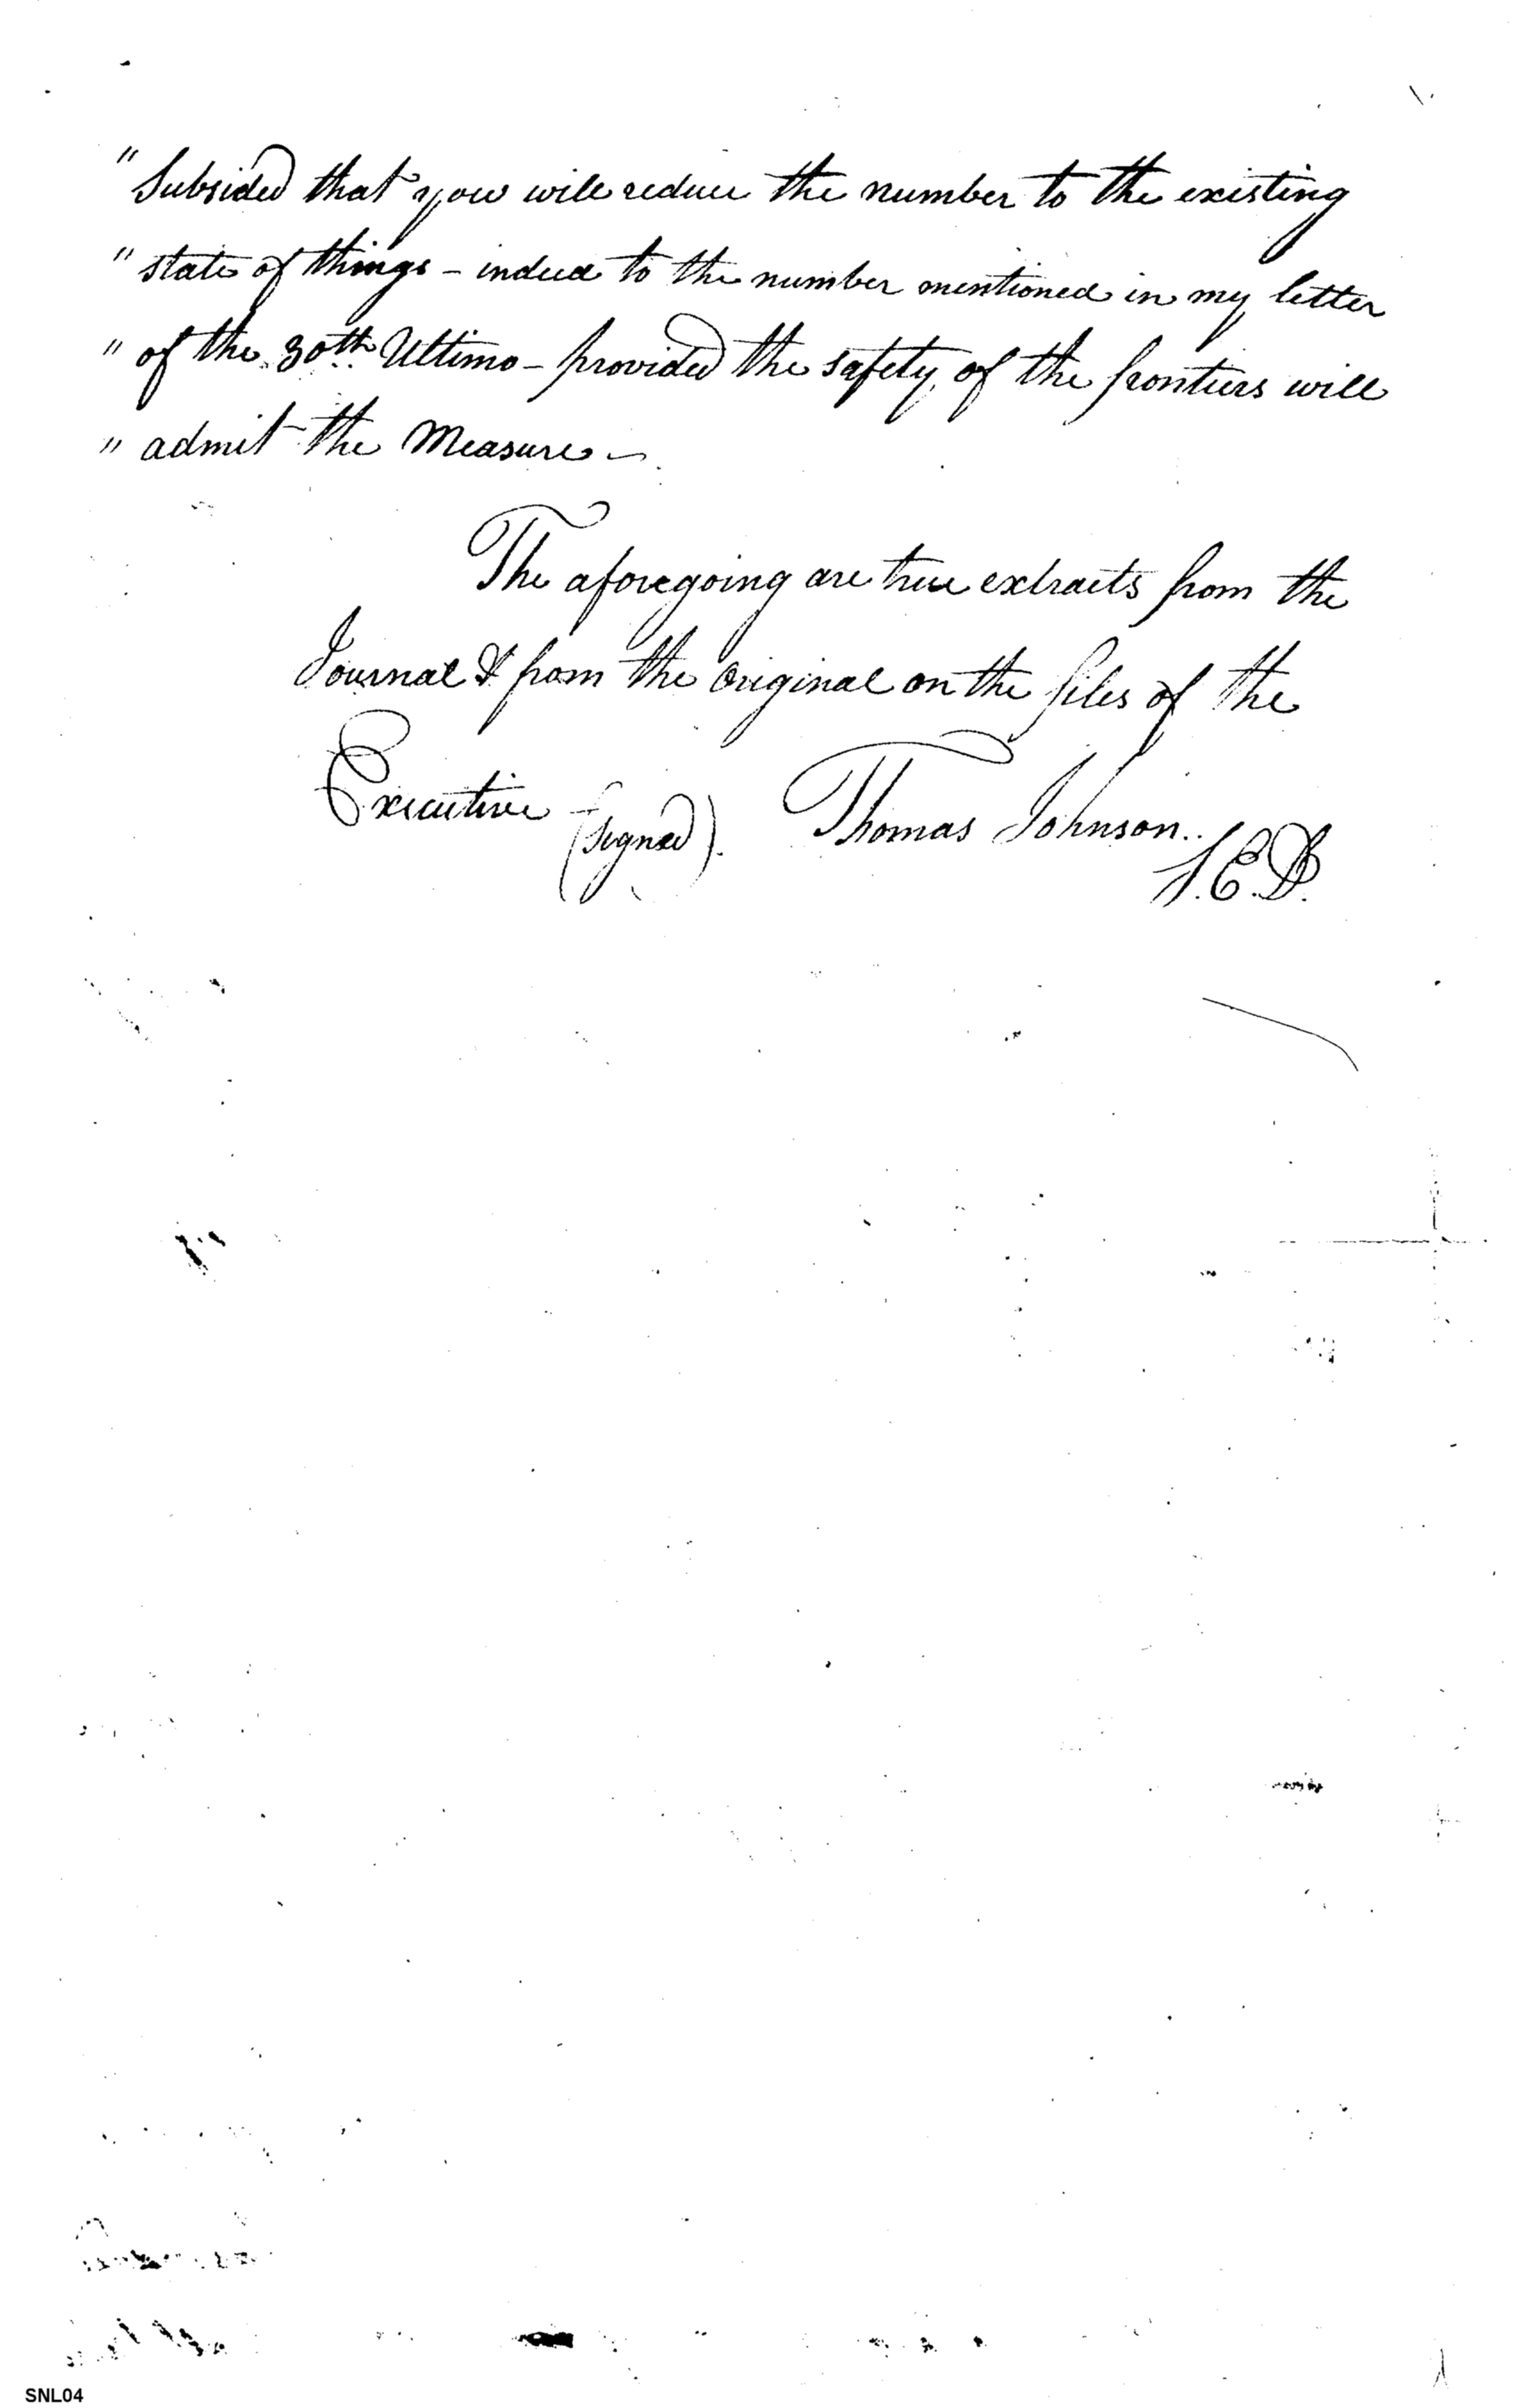 " Subsided that you will reduce the number to the existing
" state of things – indeed to the number mentioned in my letter
" of the 30th Ultimo – provided the safety of the frontiers will
" admit the Measure –
The aforegoing are true extracts from the
Journal & from the Original on the files of the
Executive
(signed). Thomas Johnson.
S.E.D.
SNL04